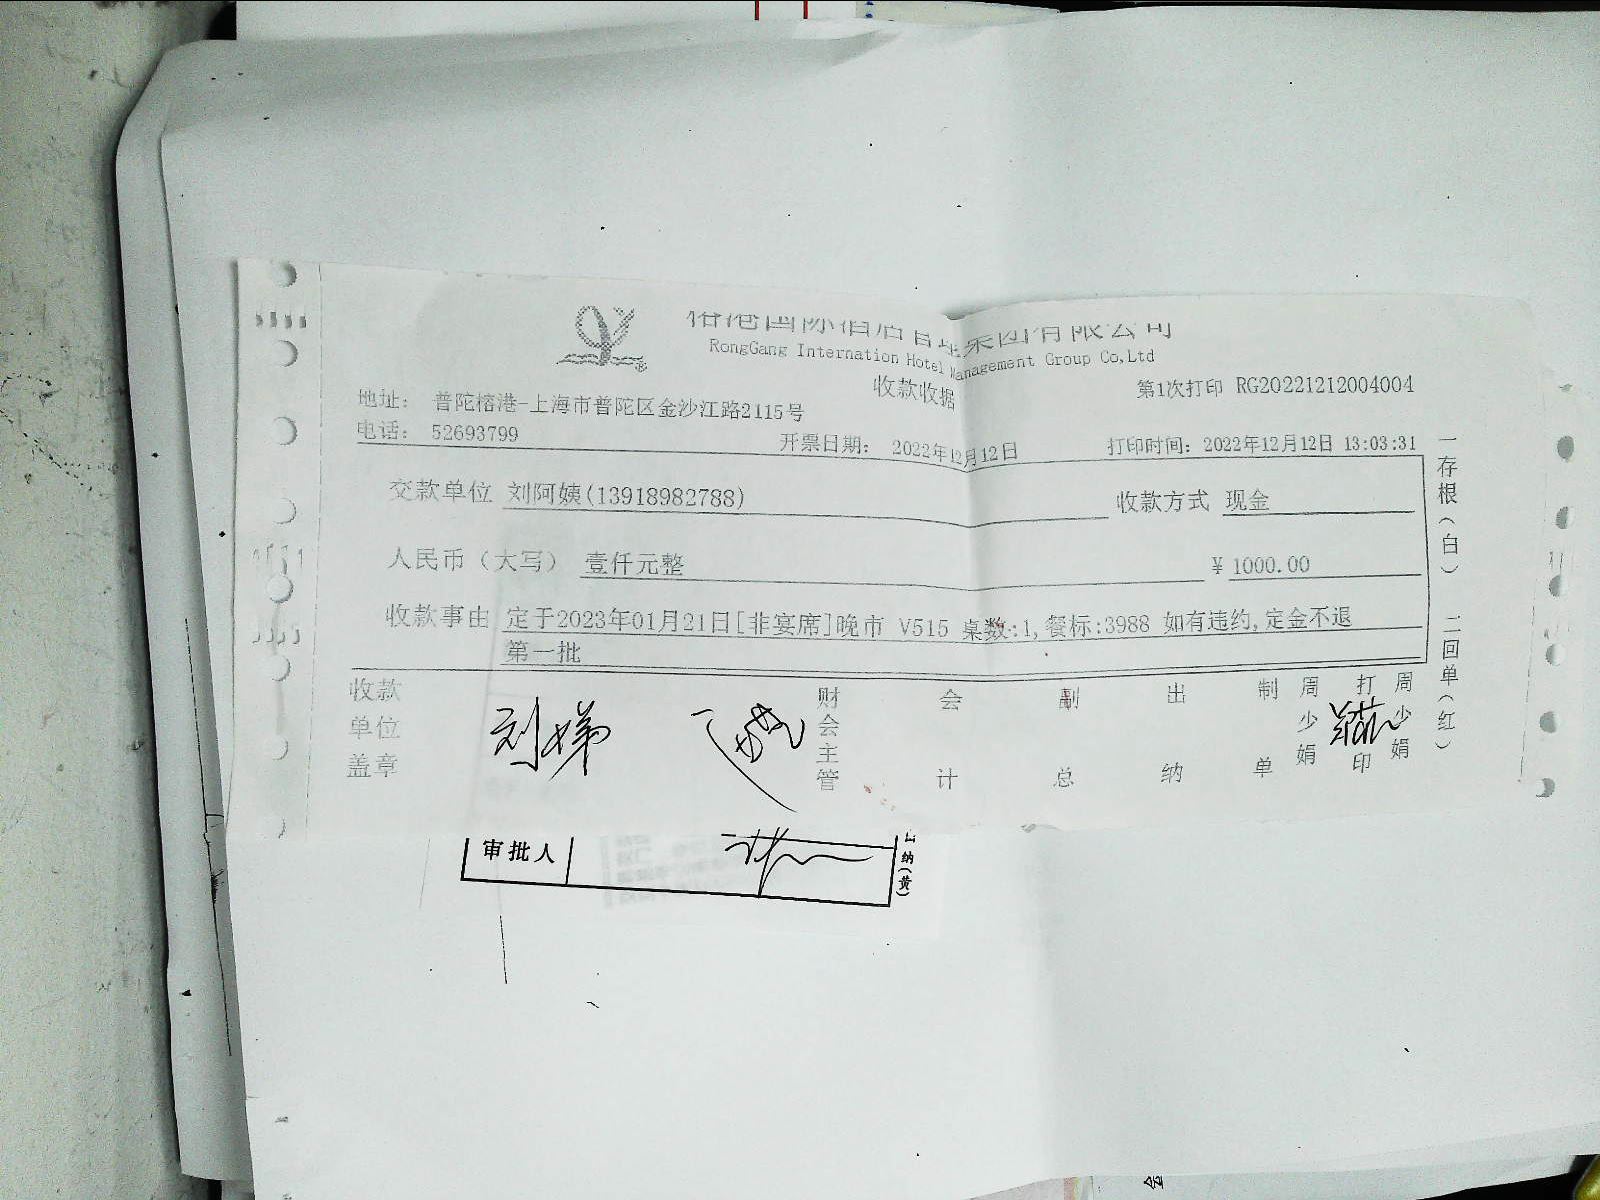 榕港国际酒店管理集团有限公司
RongGang Internation Hotel Management Group Co,Ltd
收款收据
第1次打印 RG20221212004004
地址: 普陀榕港-上海市普陀区金沙江路2115号
电话: 52693799 开票日期: 2022年12月12日 打印时间: 2022年12月12日 13:03:31
交款单位 刘阿姨(13918982788) 收款方式 现金
人民币（大写） 壹仟元整 ￥1000.00
收款事由 定于2023年01月21日[非宴席]晚市 V515 桌数:1,餐标:3988 如有违约,定金不退
第一批
收款单位盖章 财会主管 会计 副总 出纳 制单 周少娟 打印 周少娟
一存根(白) 二回单(红)
审批人
纳(黄)